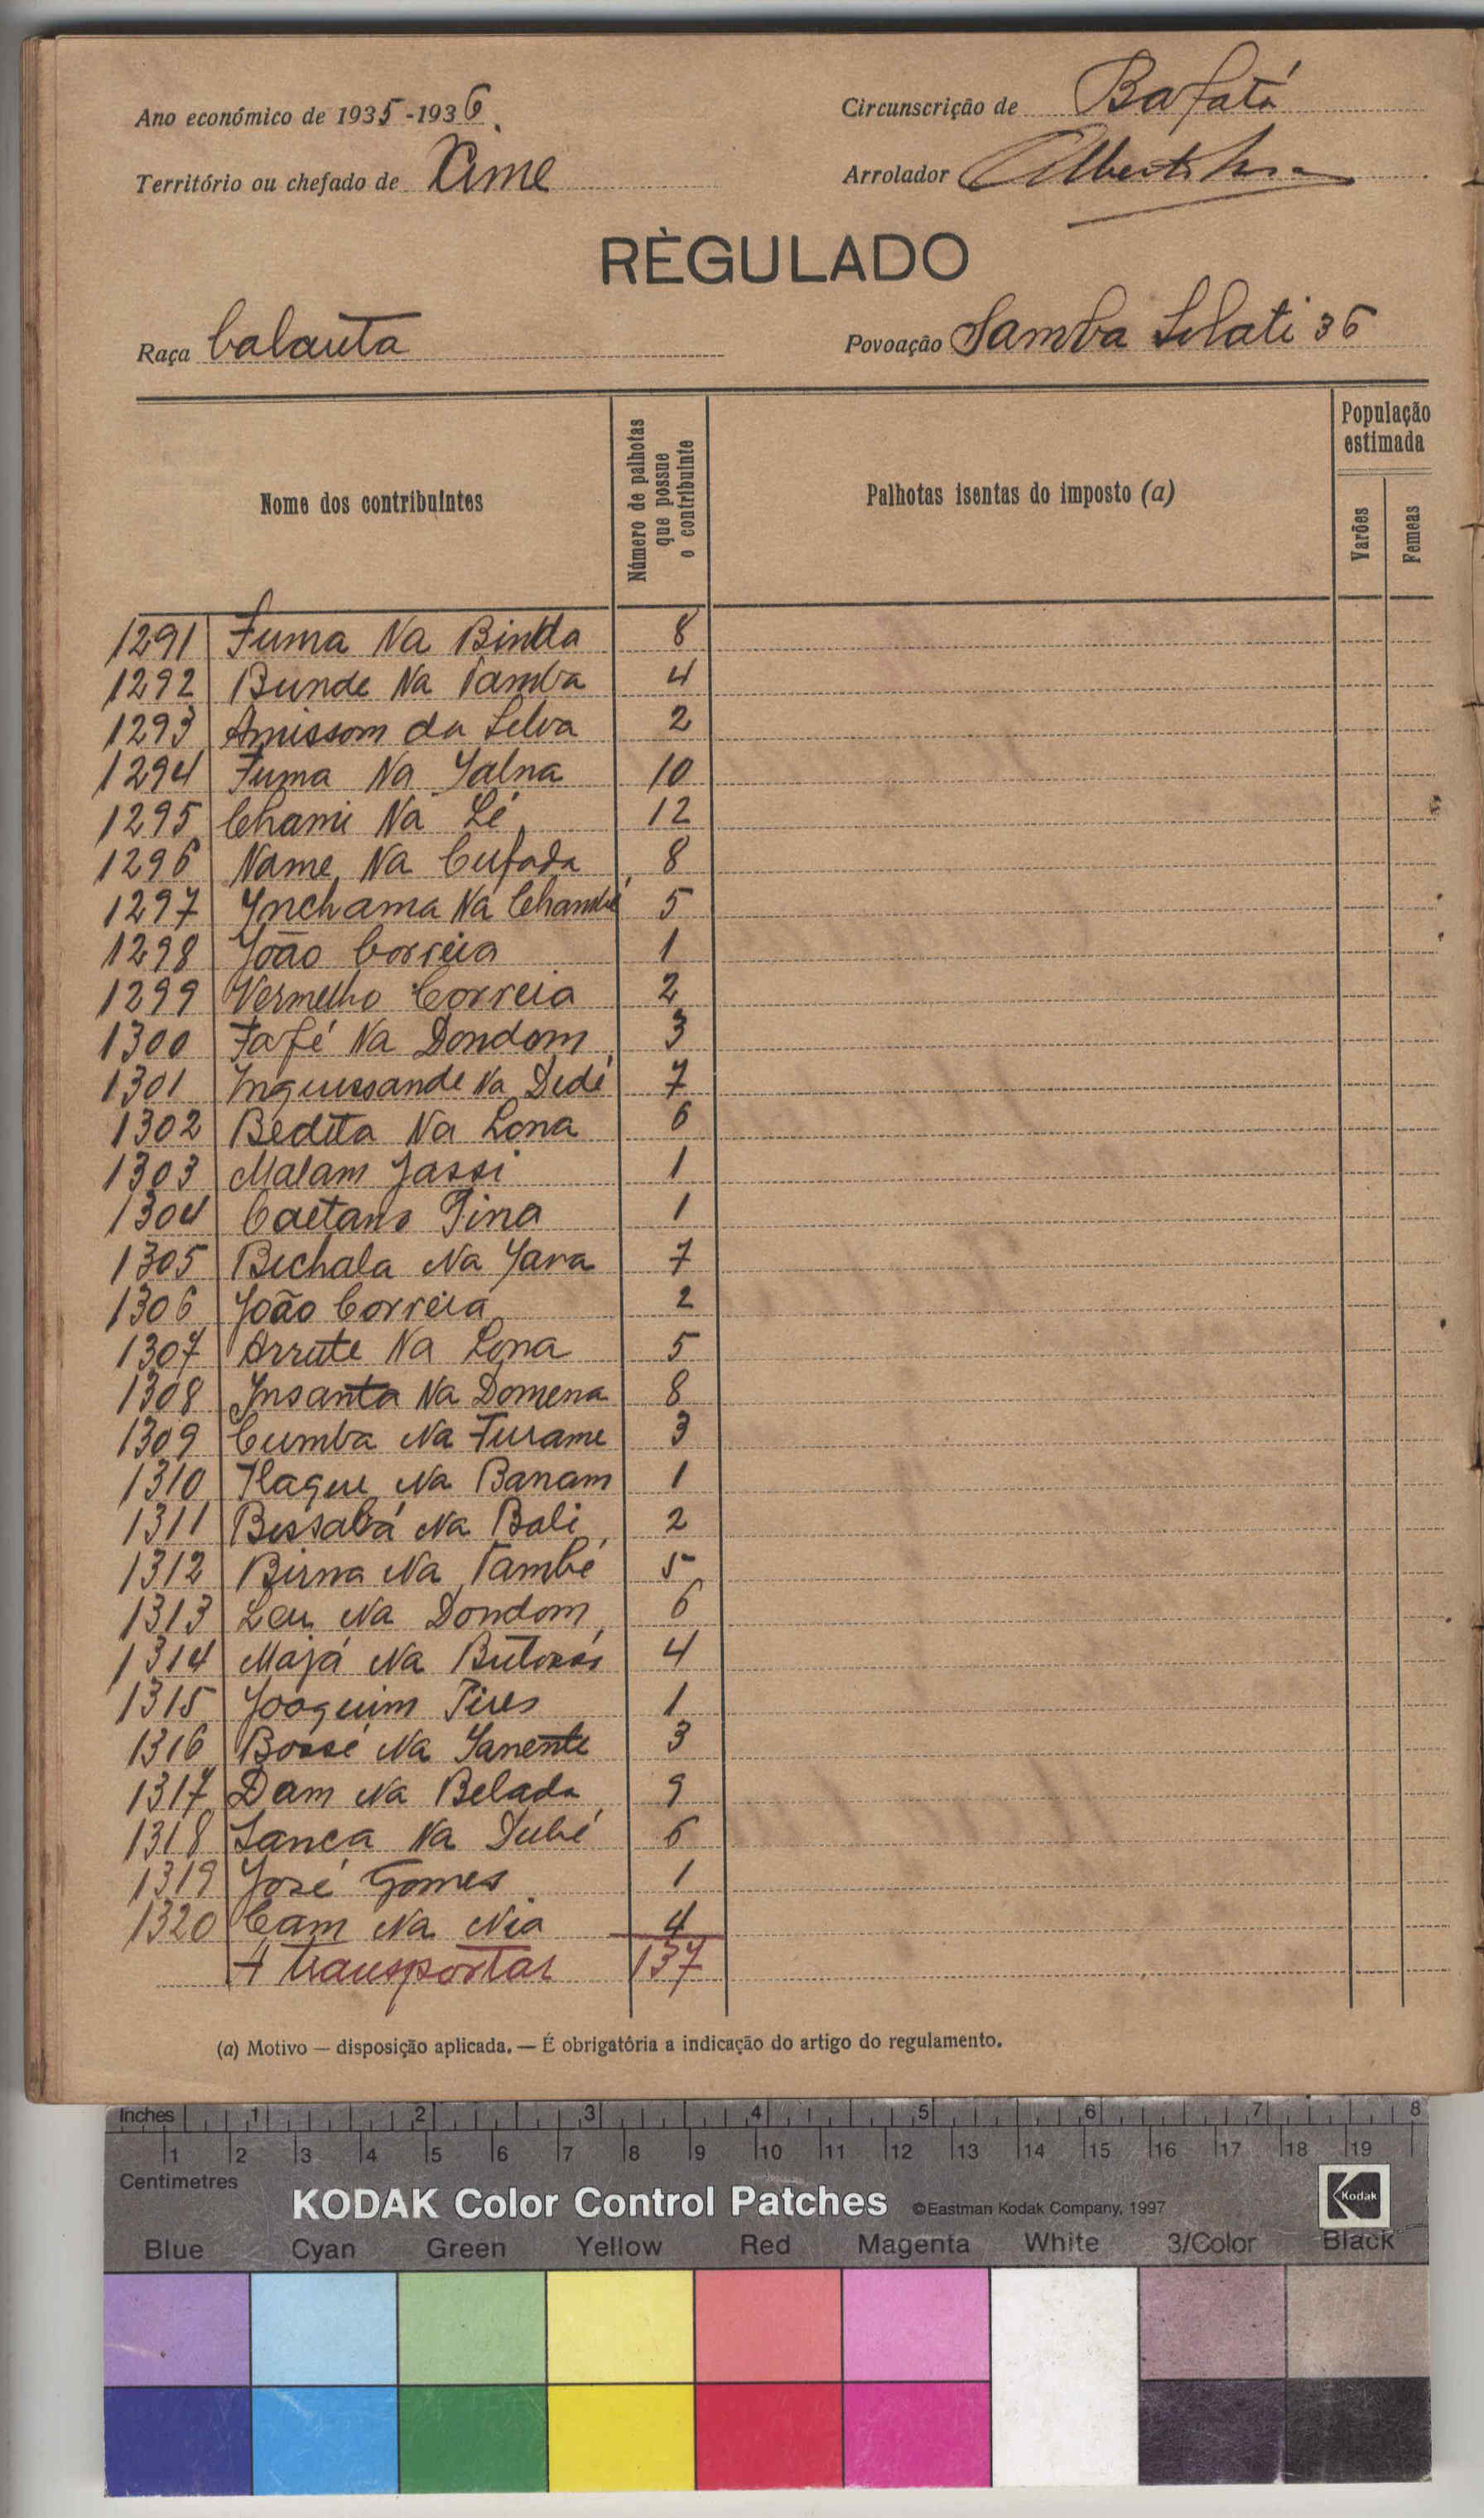 Ano económico de 1935-1936.
Circunscrição de Bafatá
Território ou chefado de Xime
Arrolador
RÈGULADO
Raça balanta
Povoação Samba Silati 36
Nome dos contribuintes
Número de palhotas que possue o contribuinte
Palhotas isentas do imposto (a)
População estimada
Varões
Femeas
1291 Fuma Na Binda 8
1292 Bunde Na Tamba 4
1293 Amissom da Silva 2
1294 Fuma Na Yalna 10
1295 Chami Na Lé 12
1296 Name Na Cufada 8
1297 Ynchama Na Chambé 5
1298 João Correia 1
1299 Vermelho Correia 2
1300 Fafé Na Dondom 3
1301 Inquessande Na Dedé 7
1302 Bedita Na Lona 6
1303 Malam Jassi 1
1304 Caetano Pina 1
1305 Bichala Na Yava 7
1306 João Correia 2
1307 Arrute Na Lona 5
1308 Insanta Na Domena 8
1309 Cumba Na Furame 3
1310 Ilaque Na Banam 1
1311 Bissabá Na Bali 2
1312 Birna Na També 5
1313 Leu Na Dondom 6
1314 Majá Na 4
1315 Joaquim Pires 1
1316 Bossé Na Yanente 3
1317 Dam Na Belada 9
1318 Sanca Na Dubé 6
1319 José Gomes 1
1320 Cam Na Nia 4
A transportar 137
(a) Motivo — disposição aplicada. — É obrigatória a indicação do artigo do regulamento.
Inches 1 2 3 4 5 6 7 8
1 2 3 4 5 6 7 8 9 10 11 12 13 14 15 16 17 18 19
Centimetres
KODAK Color Control Patches ©Eastman Kodak Company, 1997 Kodak
Blue Cyan Green Yellow Red Magenta White 3/Color Black